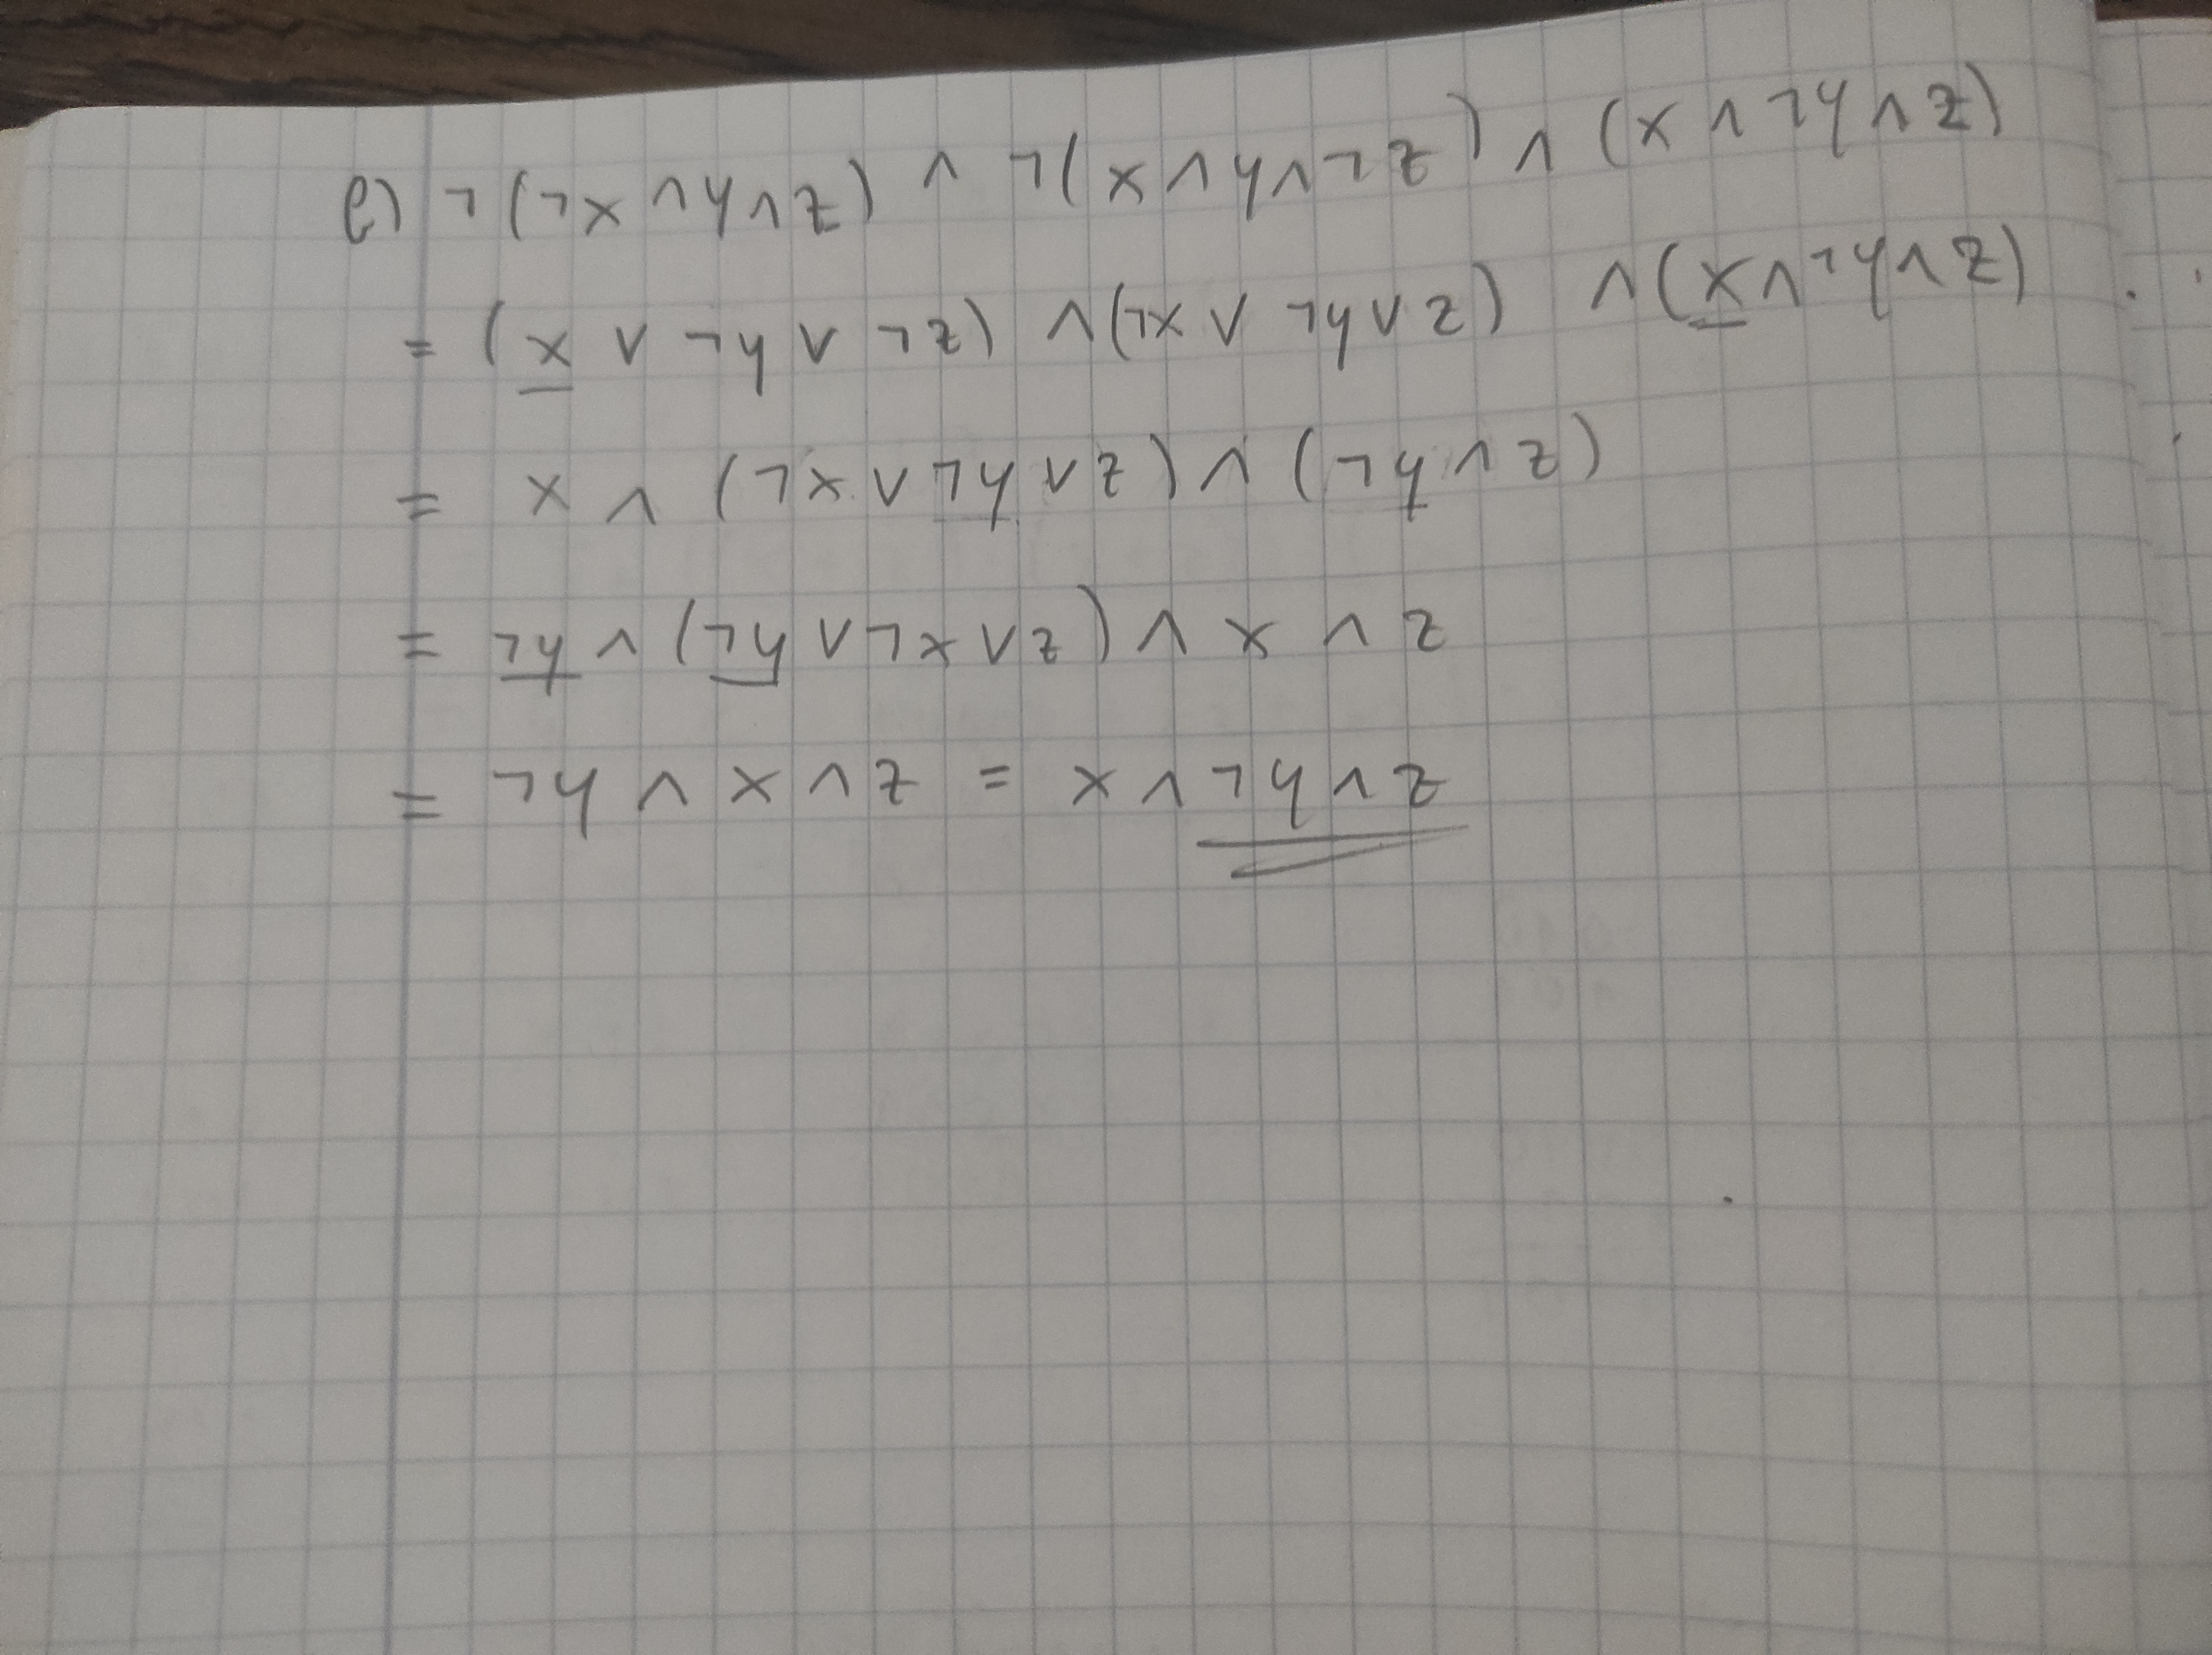 e) ¬(¬x∧y∧z) ∧ ¬(x∧y∧¬z) ∧ (x∧¬y∧z)
= (x ∨ ¬y ∨ ¬z) ∧(¬x ∨ ¬y∨z) ∧(x∧¬y∧z)
= x ∧ (¬x∨¬y∨z) ∧ (¬y∧z)
= ¬y ∧ (¬y∨¬x∨z) ∧ x ∧ z
= ¬y ∧ x ∧ z = x∧¬y∧z